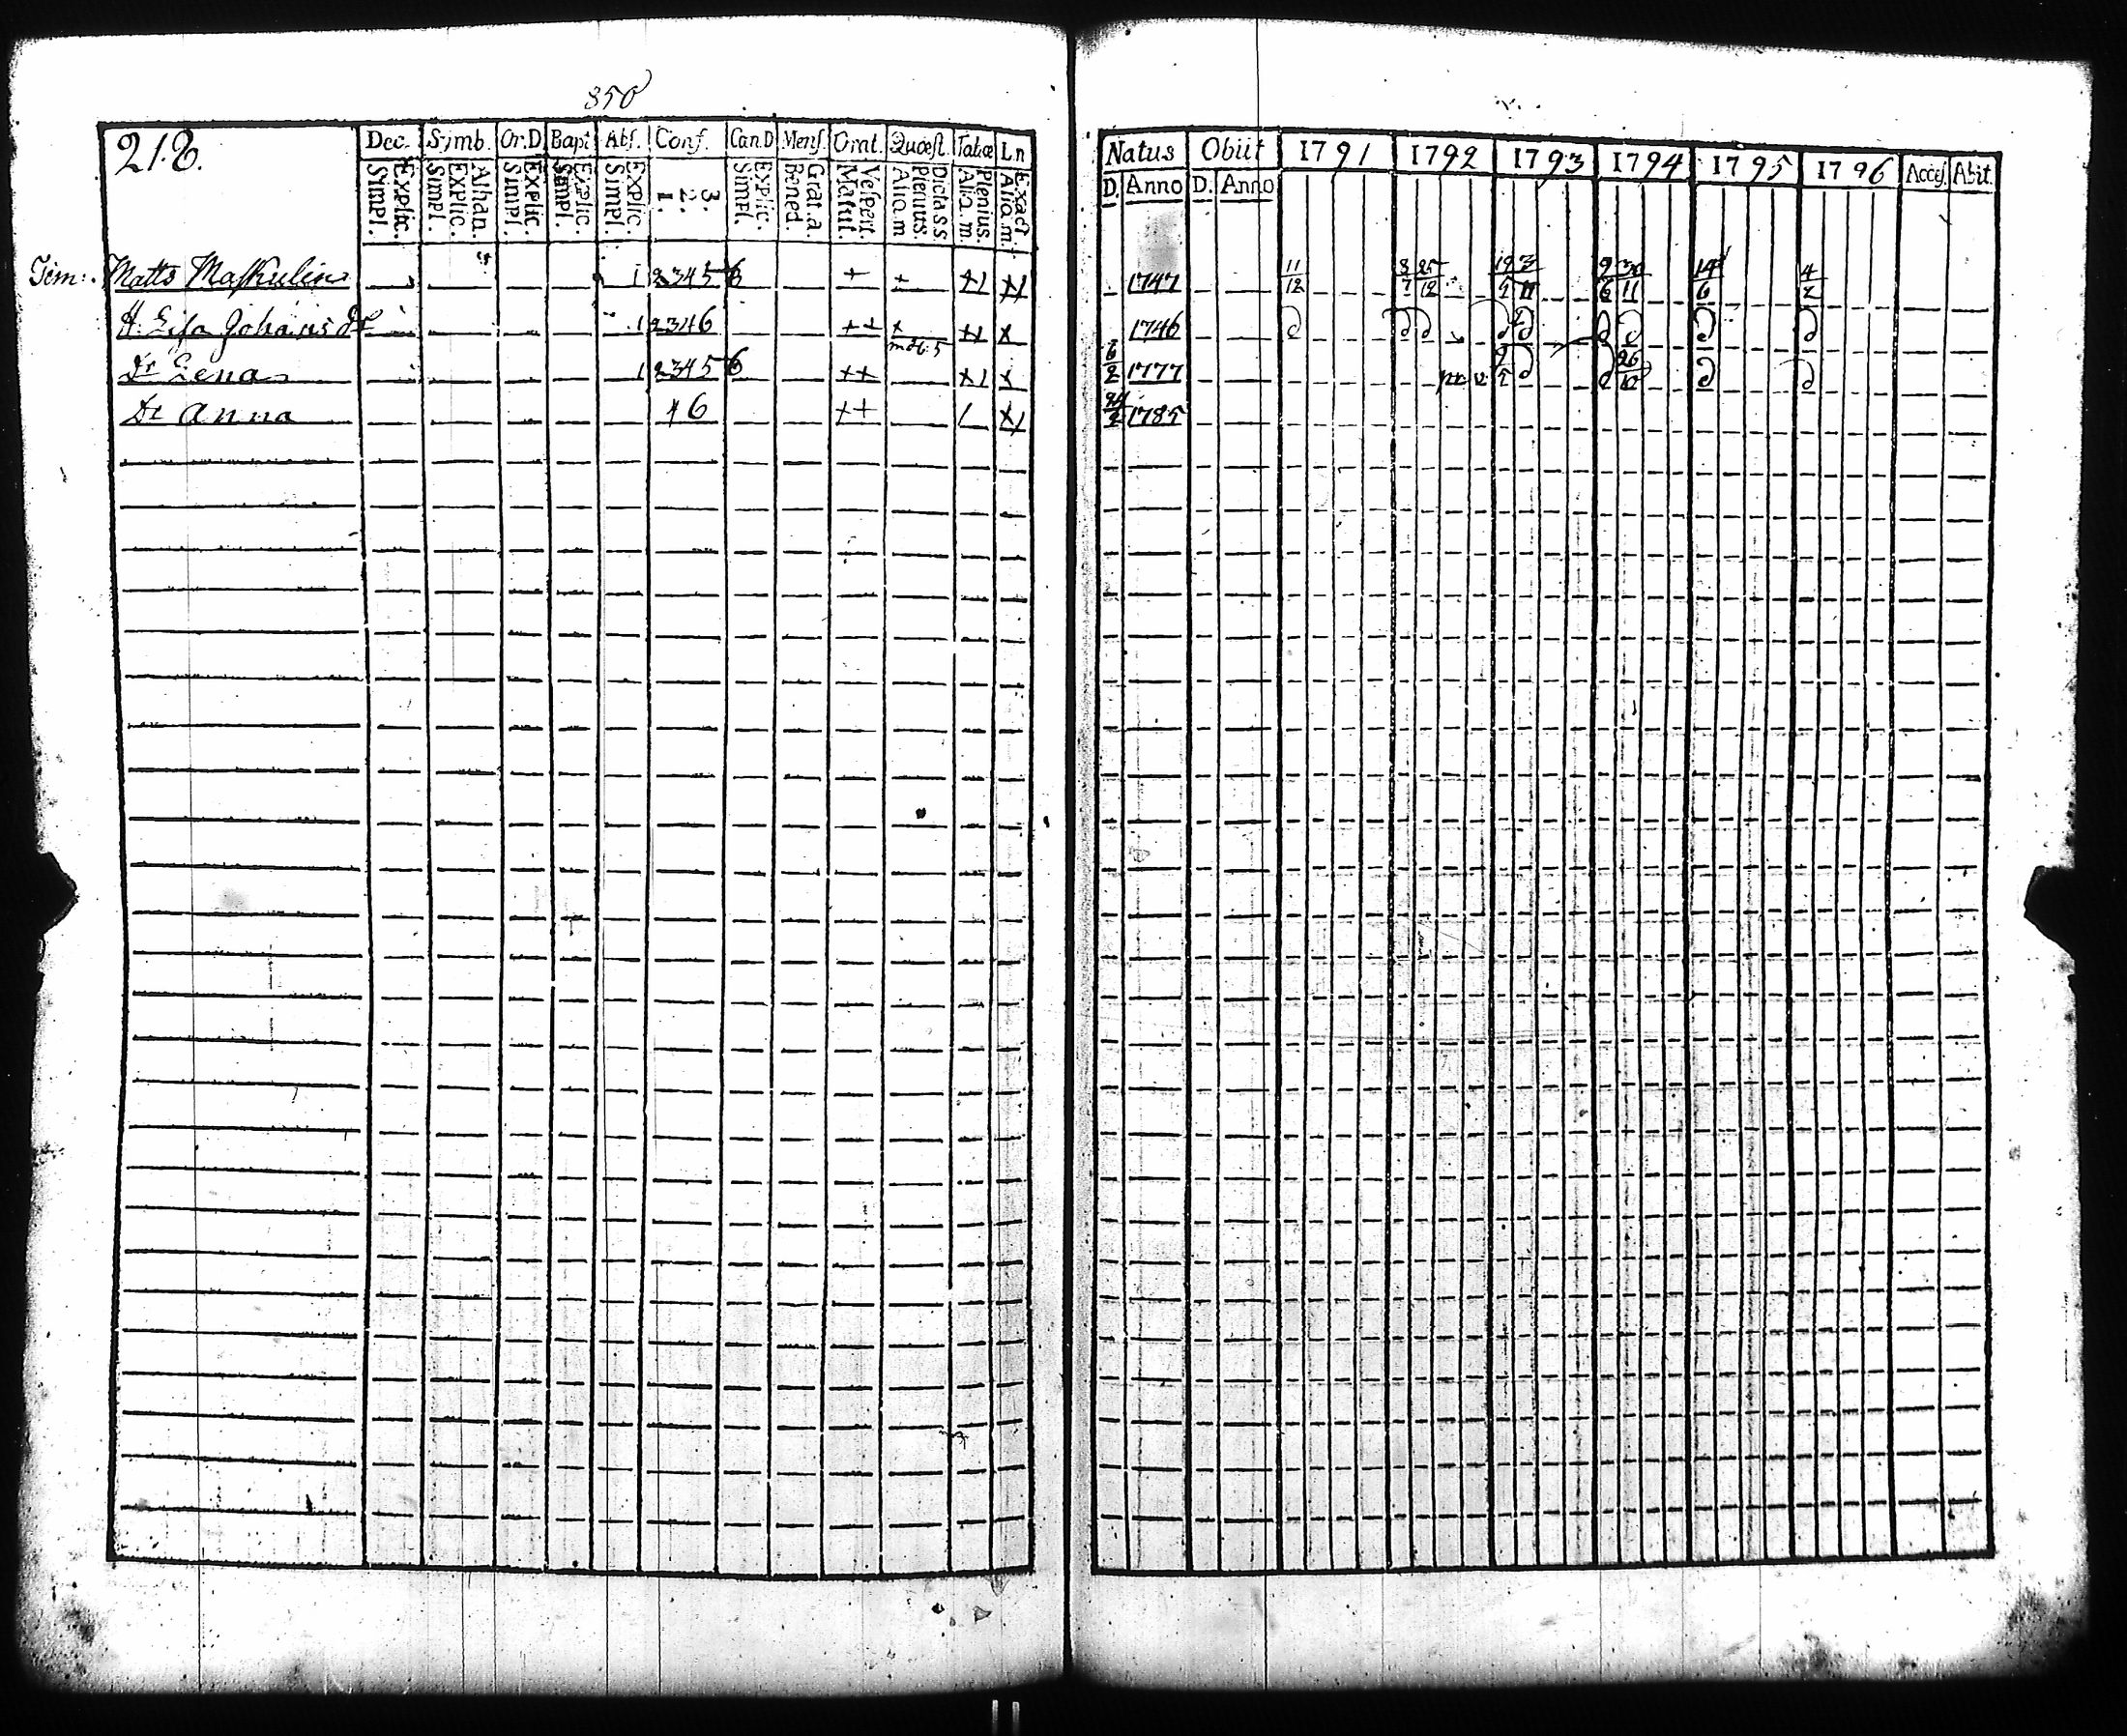 850
218.
Dec. Simb. Or.D Bapt Abs. Conf. Can.D Mens. Orat. Quæst. Tabæ Ln
Simpl. Explic. Simpl. Explic. Athan. Simpl. Explic. Simpl. Explic. Simpl. Explic. 1. 2. 3. Simpl. Explic. Bened. Grat. a. Matut. Vespert. Aliq. m Plenius. Dicta s s. Aliq. m. Plenius. Aliq. m. Exact.
Tim: Matts Maskulin 1 23456 + +
H. Lisa Johansdr 1 2346 ++ + x
Dr Lena 1 23456 ++ x
Dr Anna 6 ++
Natus Obiit 1791 1792 1793 1794 1795 1796 Acces. Abit.
D. Anno D. Anno
1747 11/12 8/7 25/12 19/2 3/11 9/6 30/11 14/6 4/2
1746
6/2 1777 26/10
24/2 1785